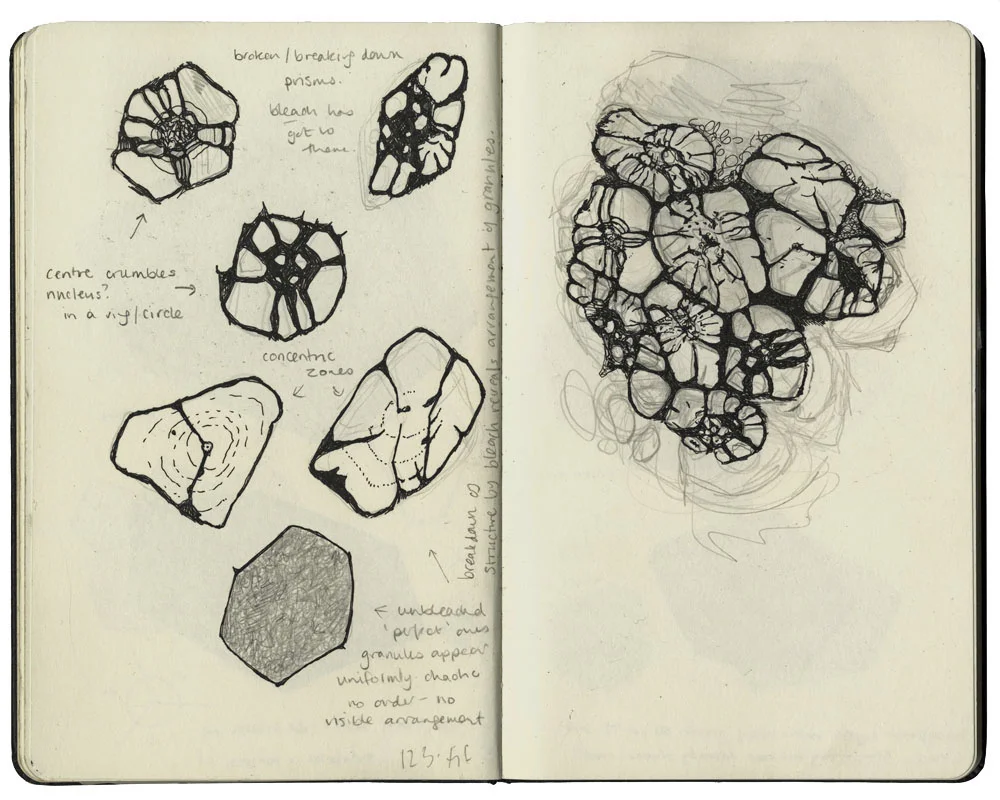 broken/breaking down
prisms.
bleach has
got to
them.
centre crumbles
nucleus?
in a ring/circle
concentric
zones
breakdown of
structure by bleach reveals arrangement of granules.
← unbleached
'perfect' ones
granules appear
uniformly chaotic
no order - no
visible arrangement